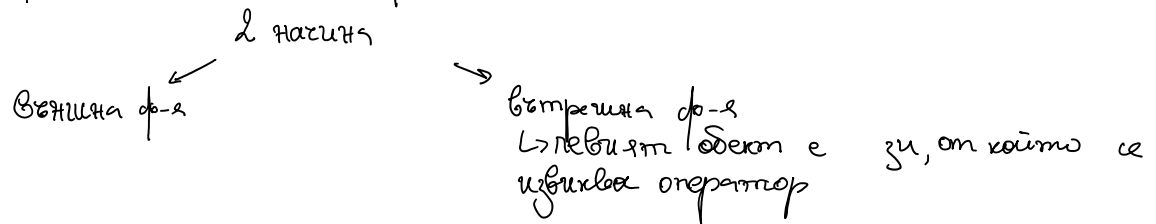 2 начина
външна ф-я
вътрешна ф-я
↳ левият обект е зи, от който се
извиква оператор